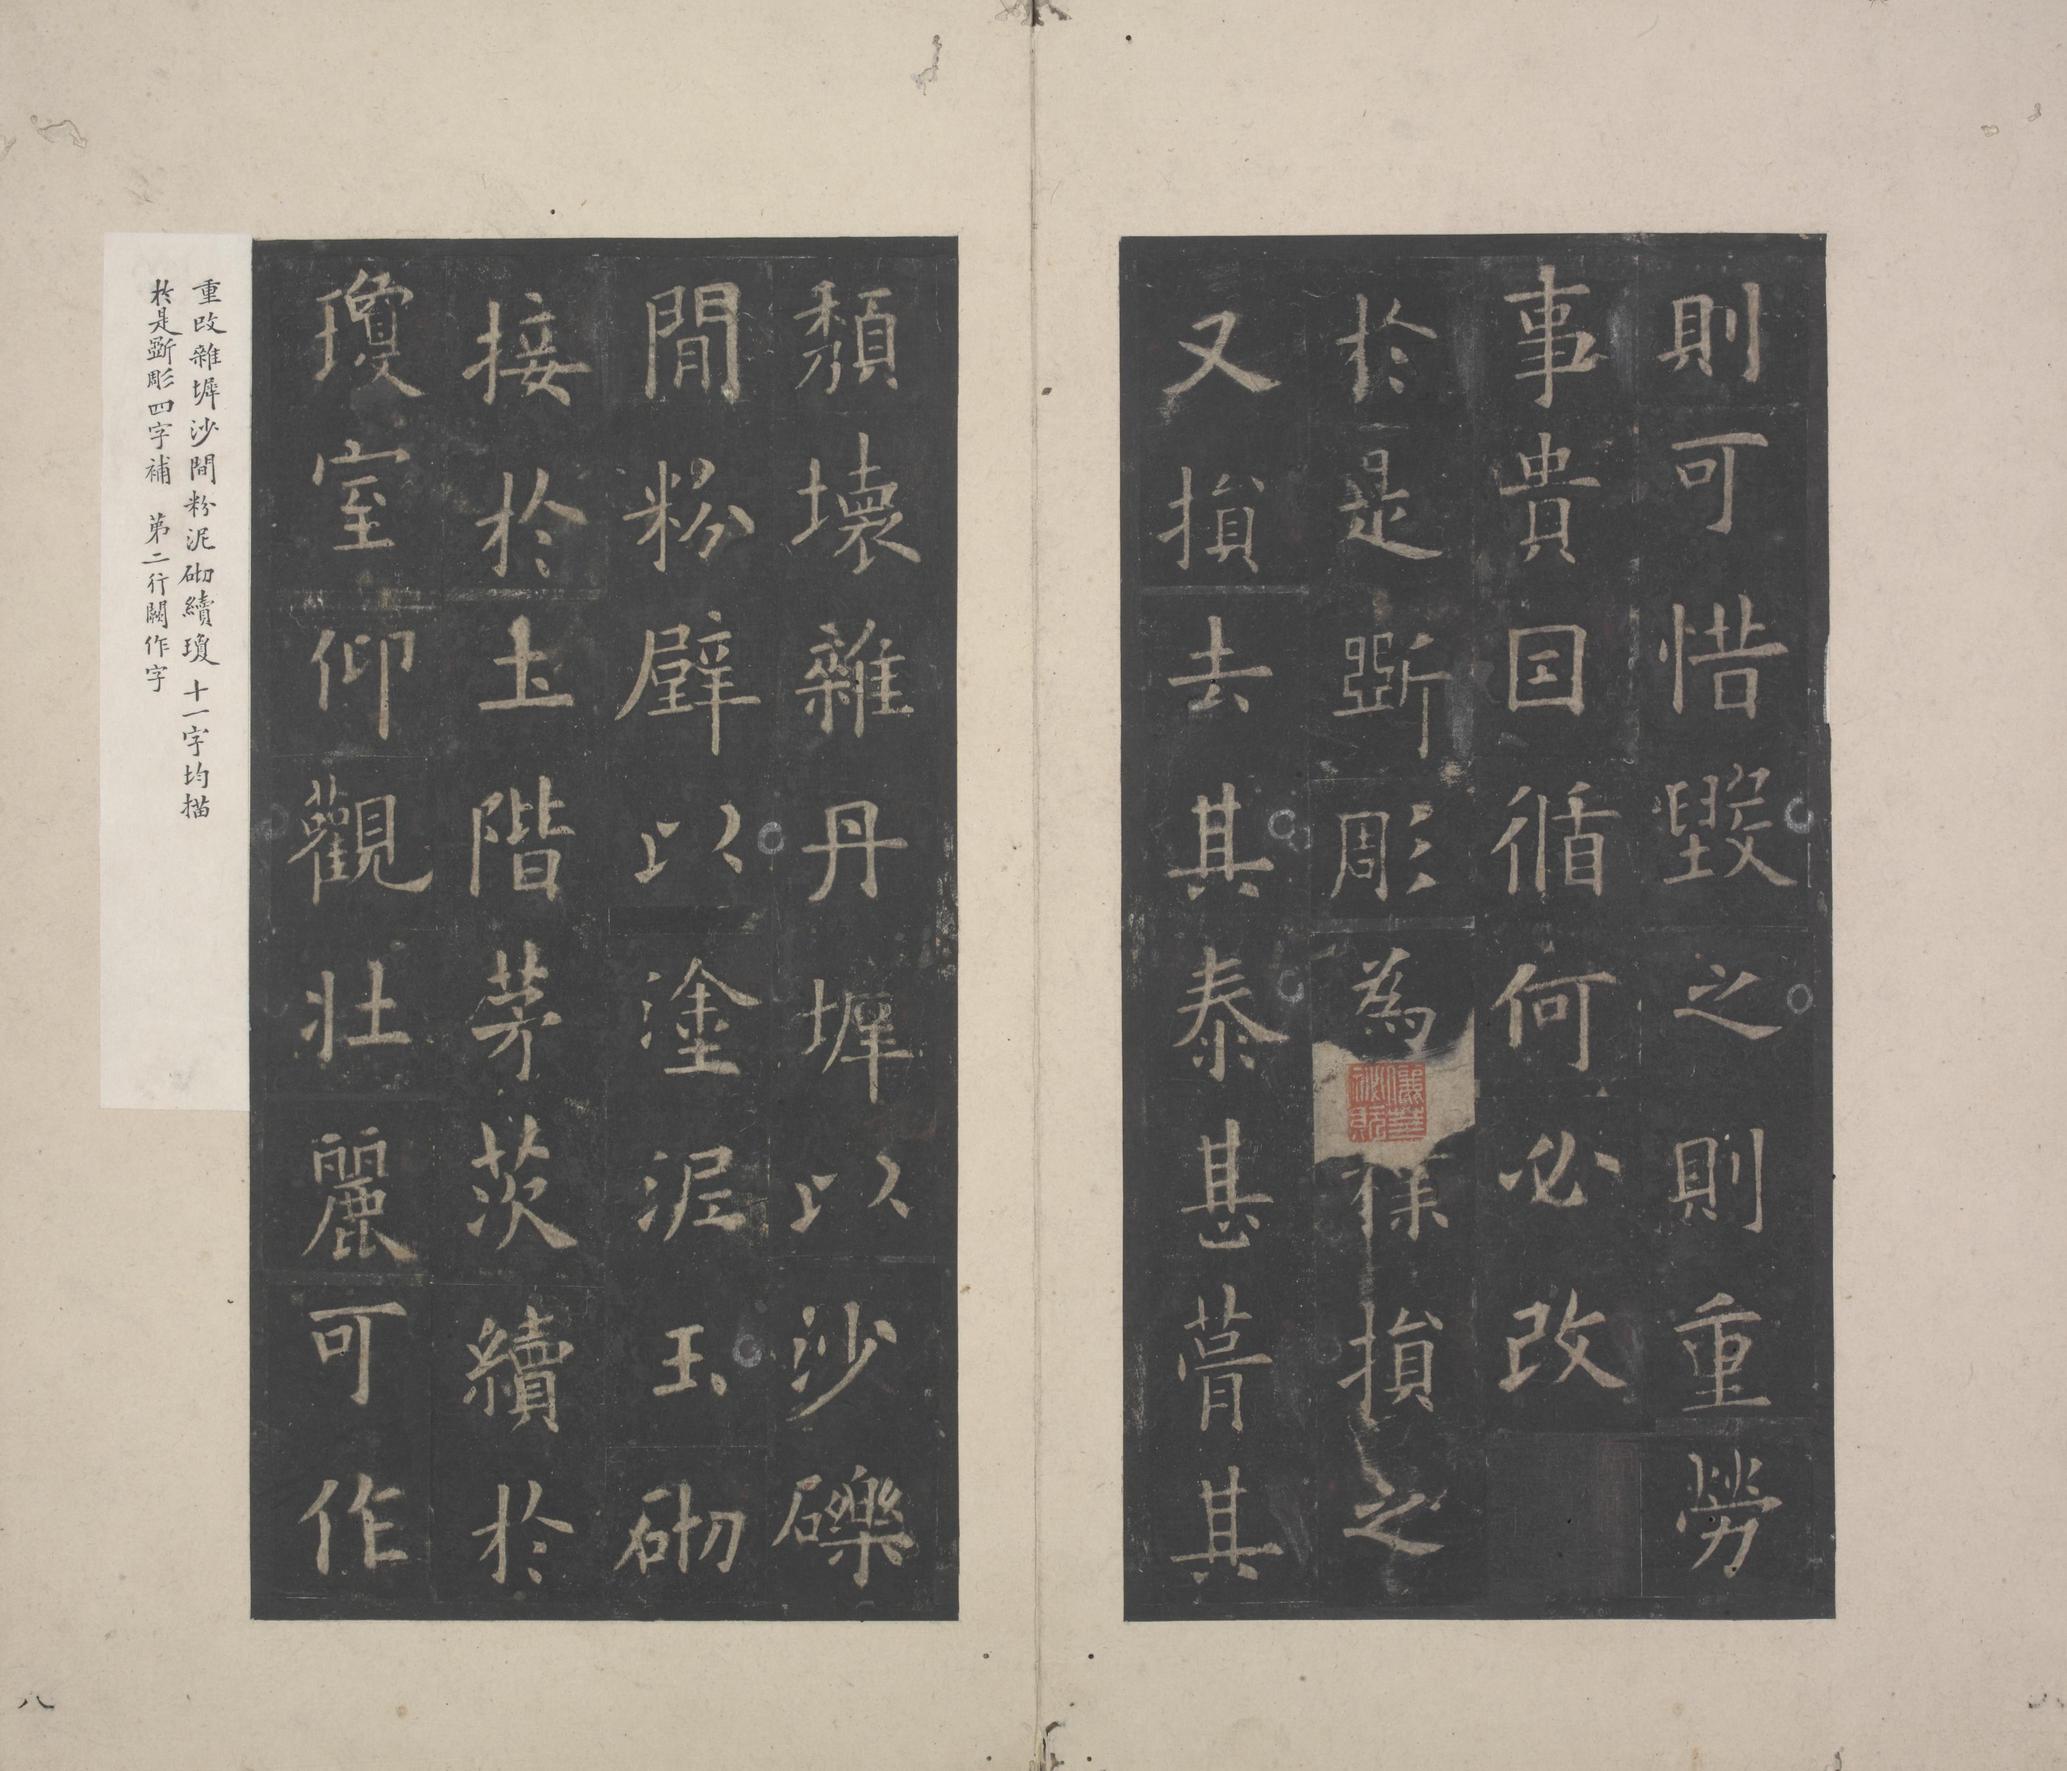 則可惜毀之則重勞
事貴囙循何必改
於是斵彫為樸損之
又損去其泰甚葺其
頹壞雜丹墀以沙礫
閒粉壁以塗泥玉砌
接於土階茅茨續於
瓊室仰觀壯麗可作
重改雜墀沙間粉泥砌續瓊 十一字均描
於是斵彫四字補 第二行闕作字
八